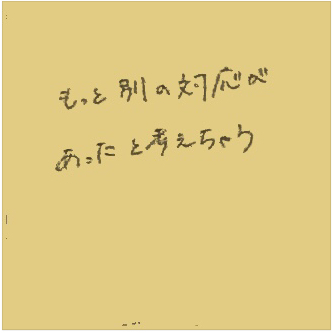 もっと別の対応が
あったと考えちゃう